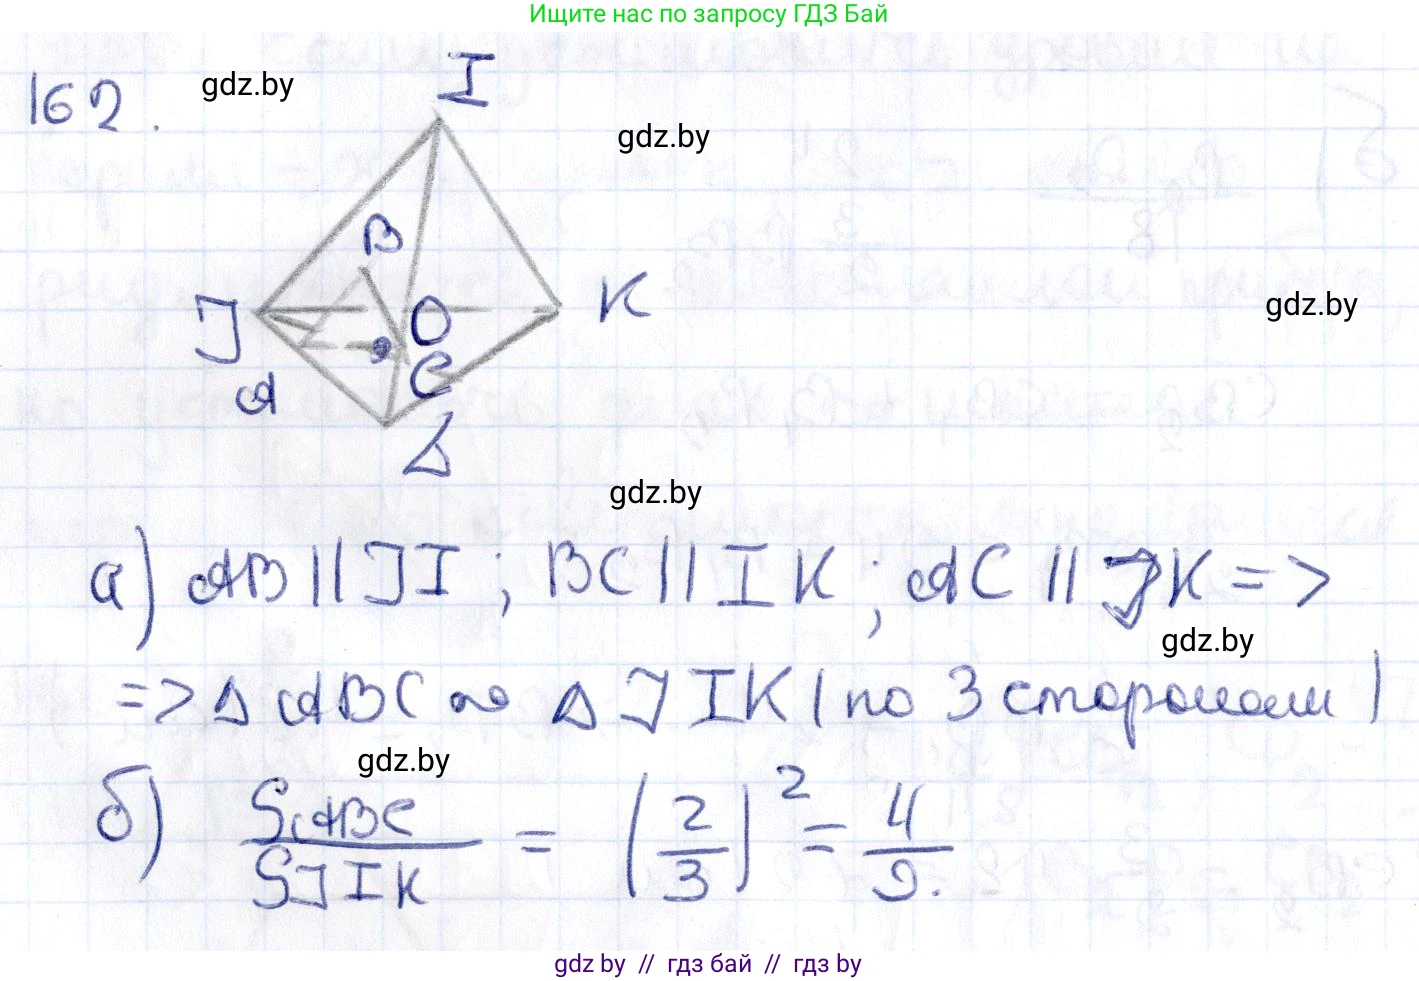 Ищите нас по запросу ГДЗ Бай
162.
gdz.by
I
gdz.by
B
J
O
K
gdz.by
A
C
L
gdz.by
а) AB || JI ; BC || IK ; AC || JK =>
gdz.by
=> Δ ABC ~ Δ JIK (по 3 сторонам)
gdz.by
б) SABC / SJIK = (2/3)² = 4/9.
gdz.by // гдз бай // гдз by